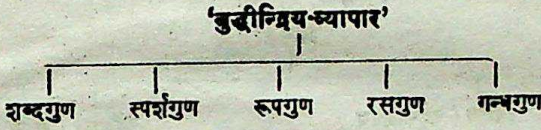 'बुद्धीन्द्रिय-व्यापार'
शब्दगुण स्पर्शगुण रूपगुण रसगुण गन्धगुण